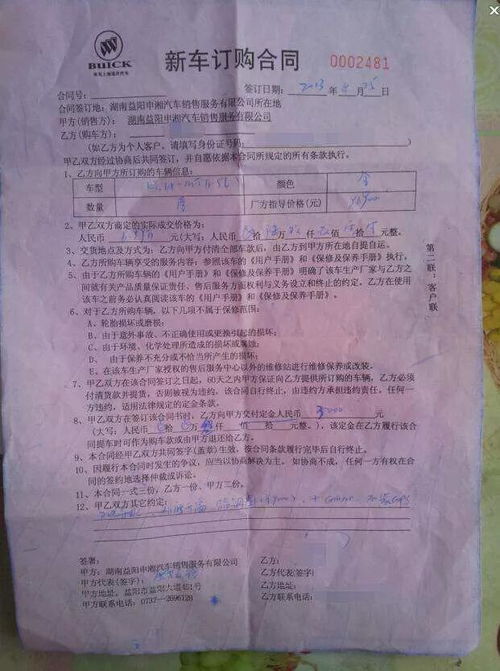 BUICK
新车订购合同
0002481
合同号:
签订日期: 2013年8月25日
合同签订地: 湖南益阳申湘汽车销售服务有限公司所在地
甲方(销售方): 湖南益阳申湘汽车销售服务有限公司
乙方(购车方):
(如乙方为个人客户, 请填写身份证号码:
甲乙双方经过协商后共同签订, 并自愿依据本合同所规定的所有条款执行。
1、乙方向甲方所订购的车辆信息:
车型 颜色
数量 厂方指导价格(元)
2、甲乙双方商定的实际成交价格为:
人民币 元(大写: 人民币 拾 万 仟 佰 拾 元整。
3、交货地点及方式为: 乙方向甲方付清全部车款后, 由乙方到甲方所在地自提自运。
4、乙方所购车辆享受的服务内容, 参照该车的《用户手册》和《保修及保养手册》执行。
5、由于乙方所购车辆的《用户手册》和《保修及保养手册》明确了该车生产厂家与乙方之
间就有关产品质量保证责任、售后服务方面权利与义务设立和终止的约定。乙方在使用
该车之前务必认真阅读该车的《用户手册》和《保修及保养手册》。
6、对于乙方所购车辆, 以下几项不属于保修范围:
A、轮胎损坏或磨损;
B、由于意外事故、不正确使用或更换引起的损坏;
C、由于环境、化学处理所造成的损坏或腐蚀;
D、由于保养不充分或不恰当所产生的损坏;
E、在该车生产厂家授权的售后服务中心以外的维修站进行维修保养或改装。
7、甲乙双方在该合同签订之日起, 60天之内甲方保证向乙方提供所订购的车辆, 乙方必须
付清货款并提货, 否则被视为违约, 该合同自行终止, 由违约方承担违约责任。任何一
方违约, 适用法律规定的定金条款。
8、甲乙双方在签订该合同书时, 乙方向甲方交付定金人民币 元
(大写: 人民币 拾 万 仟 佰 拾 元整。), 该定金在乙方履行该合
同提车时可作为购车款或由甲方退还给乙方。
9、本合同经甲乙双方共同签字(盖章)生效, 按合同条款履行完毕后自行终止。
10、因履行本合同时发生的争议, 应当以协商解决为主。如协商不成, 任何一方有权在合
同的签约地选择仲裁或诉讼。
11、本合同一式三份, 乙方一份、甲方二份。
12、甲乙双方其它约定:
签署:
甲方: 湖南益阳申湘汽车销售服务有限公司
甲方代表(签字):
甲方地址: 益阳市益阳大道 号
甲方联系电话: 0737-2696128
乙方:
乙方代表(签字):
乙方地址:
乙方联系电话:
第二联: 客户联